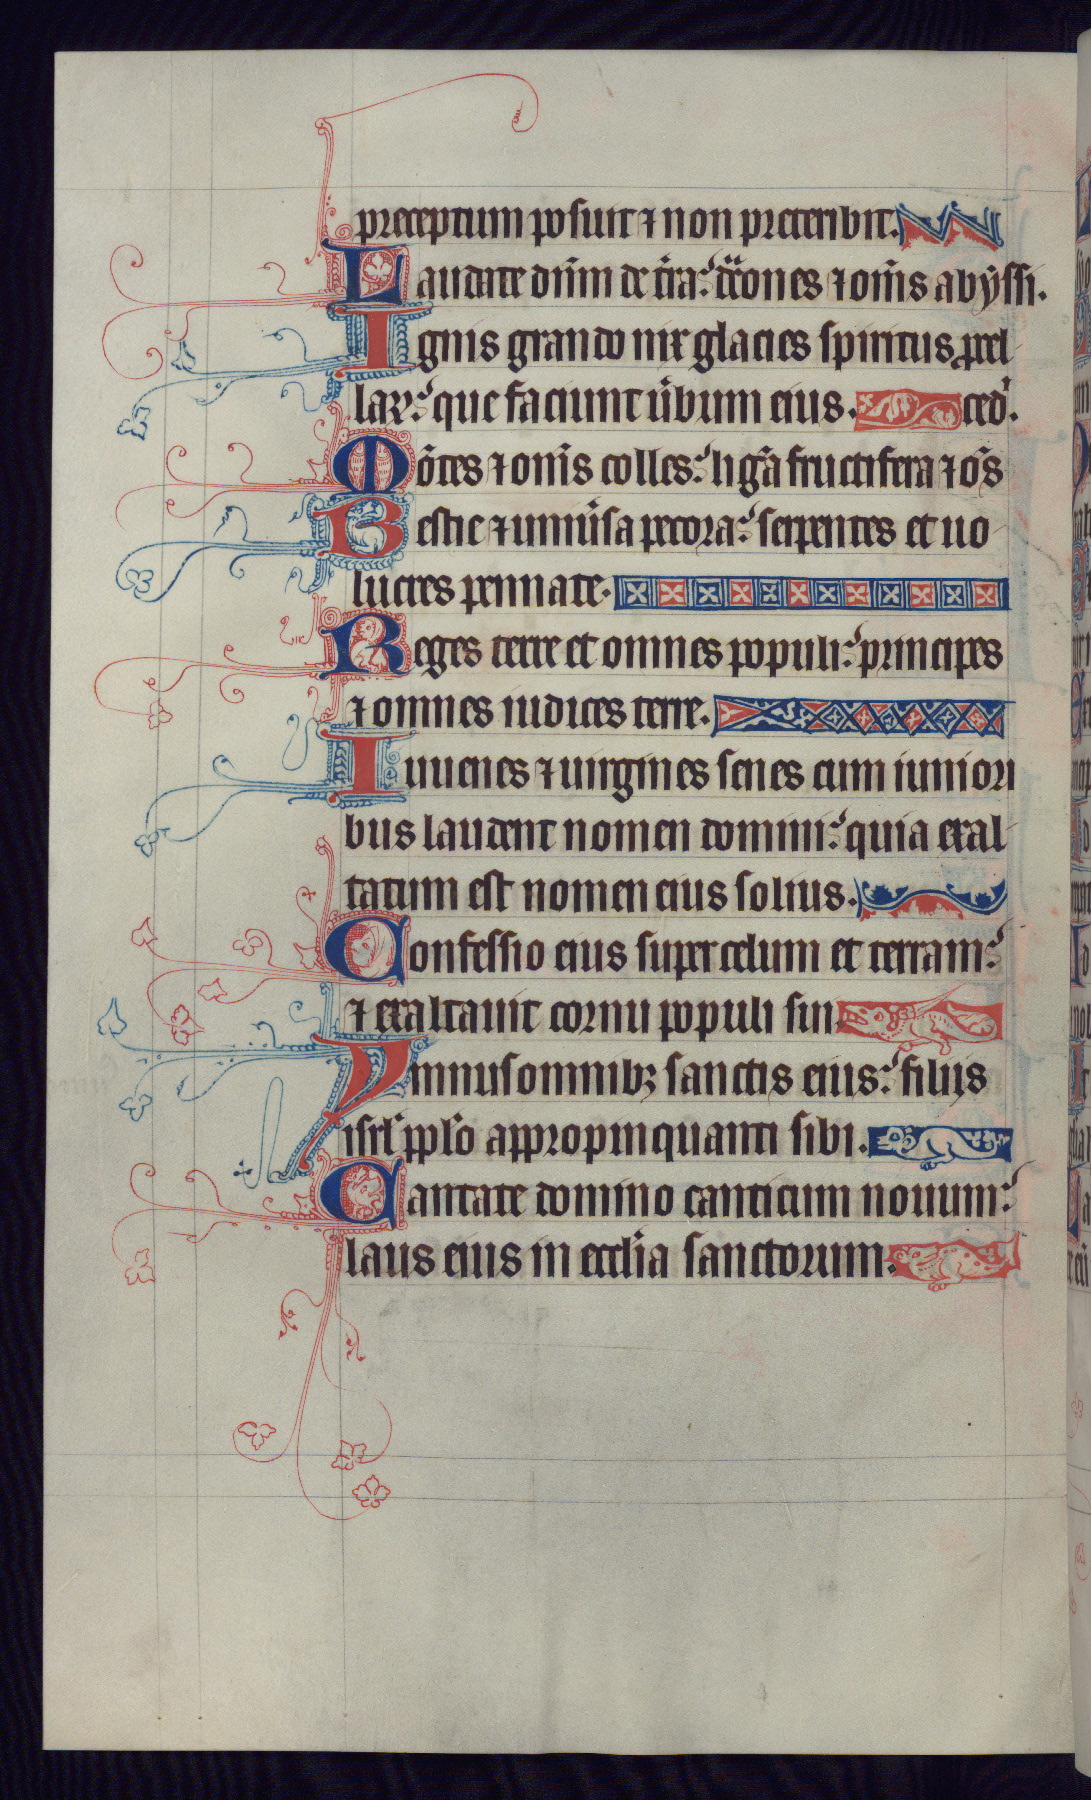 preceptum posuit ⁊ non preteribit.
Laudate dn̄m de t̄ra: dͣcones ⁊ om̄s abyssi.
Ignis grando nix glacies spiritus ꝓcel
laꝝ: que faciunt u̾bum eius. ced᷑.
Mōtes ⁊ om̄s colles: ligͣa fructifera ⁊ ōs
Bestie ⁊ uniu̾sa pecora: serpentes et uo
lucres pennate.
Reges terre et omnes populi: principes
⁊ omnes iudices terre.
Iuuenes ⁊ uirgines senes cum iuniori
bus laudent nomen domini: quia exal
tatum est nomen eius solius.
Confessio eius super celum et terram:
⁊ exaltauit cornu populi sui.
Ymnus omnibꝫ sanctis eius: filijs
isrl̄ ppl̄o appropinquanti sibi.
Cantate domino canticum nouum:
laus eius in eccl̄ia sanctorum.